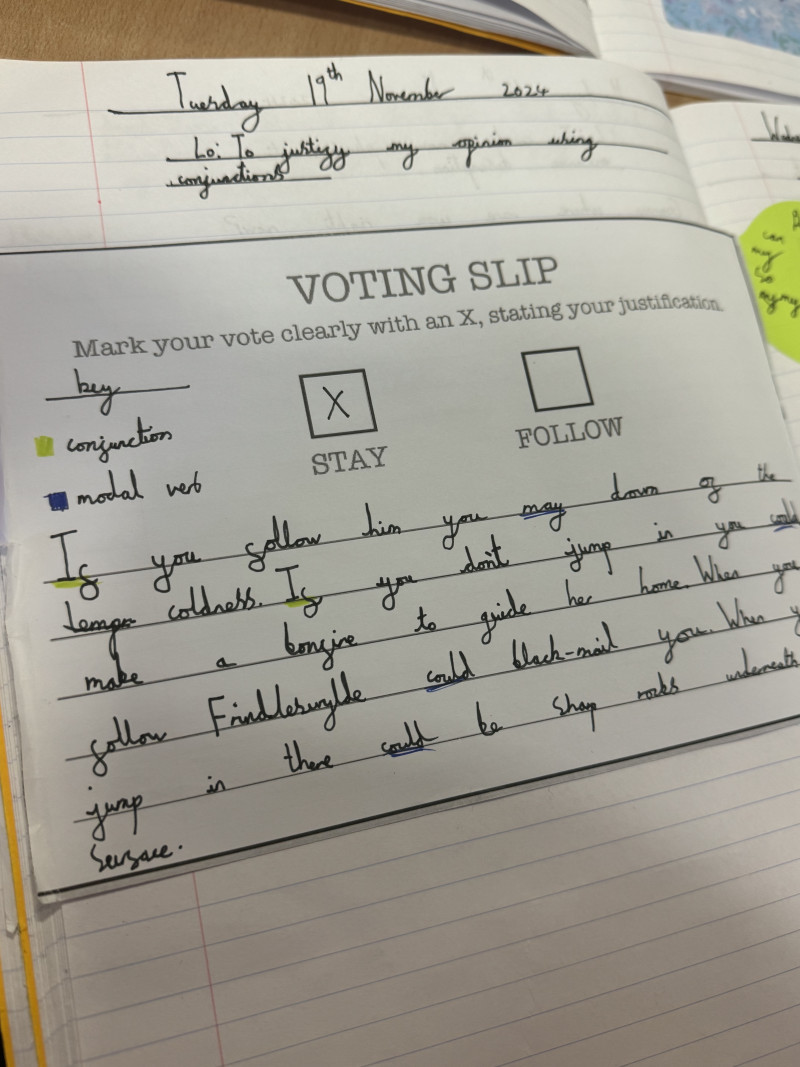 Tuesday 19th November 2024
Lo: To justify my opinion using
conjunctions
VOTING SLIP
Mark your vote clearly with an X, stating your justification.
key
conjunction
modal verb
X
STAY
FOLLOW
If you follow him you may down of the
temper coldness. If you don't jump in you could
make a bonfire to guide her home. When you
follow Frindleswylde could black-mail you. When y
jump in there could be sharp rocks underneath
surface.
can
my
so